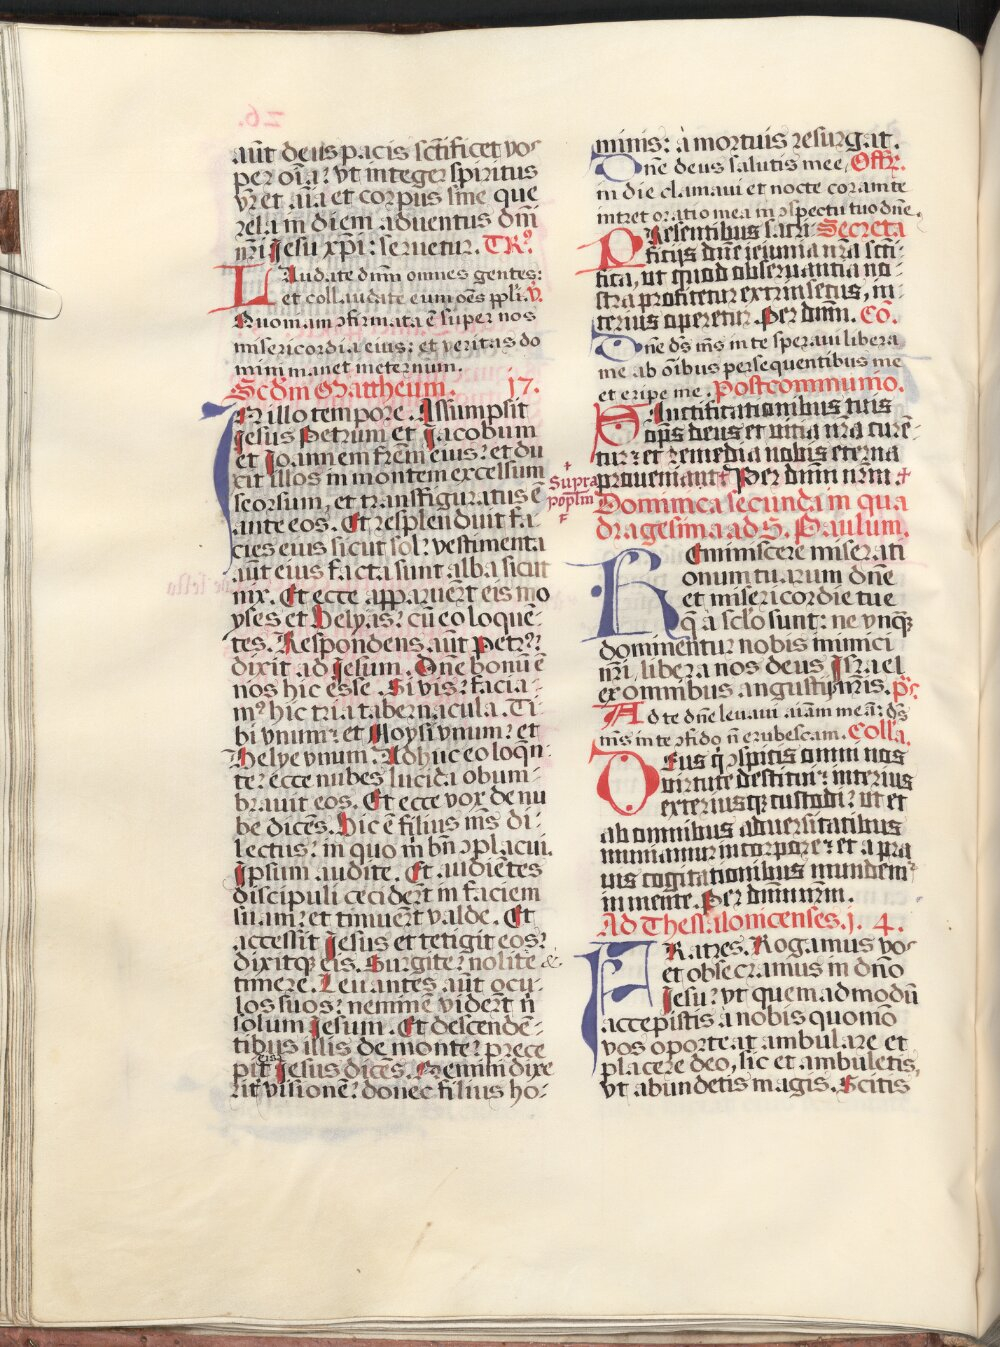 aūt deus pacis scīficet vos
per oīa: vt integer spiritus
vr̄ et aīa et corpus sine que
rela in diem aduentus dnī
nr̄i Iesu xp̄i: seruetur. TRꝰ.
Laudate dnm̄ omnes gentes:
et collaudate eum oēs ppl̄i. ℣.
Quoniam ↄfirmata ē super nos
misericordia eius: et veritas do
mini manet ineternum.
Scd̄m Mattheum. 17.
IN illo tempore. Assumpsit
Iesus Petrum et Iacobum
et Ioannem frēm eius: et du
xit illos in montem excelsum
seorsum, et transfiguratus ē
ante eos. Et resplenduit fa
cies eius sicut sol: vestimenta
aūt eius facta sunt alba sicut
nix. Et ecce apparuēr̄t eis mo
yses et Helyas: cū eo loquē-
tes. Respondens aūt Petrꝰ:
dixit ad Iesum. Dn̄e bonū ē
nos hic esse. Si vis: facia-
mꝰ hic tria tabernacula. Ti
bi vnum: et Moysi vnum: et
Helye vnum. Adhuc eo loqn̄-
te: ecce nubes lucida obum-
brauit eos. Et ecce vox de nu
be dicēs. Hic ē filius ms̄ di-
lectus: in quo m̄ bn̄ ↄplacui.
Ipsum audite. Et audiētes
discipuli cecidert̄ in faciem
suam: et timuer̄t valde. Et
accessit Iesus et tetigit eos:
dixitqꝫ eis. Surgite: nolite &
timere. Leuantes aūt ocu-
los suos: neminē viderīt n̄
solum Iesum. Et descendē-
tibus illis de monte: prece
pit eis Iesus dicēs. Nemini dixe
ritꝭ visionē: donec filius ho-
minis: à mortuis resurgat.
Dn̄e deus salutis mee. Offꝛ.
in die clamaui et nocte coram te
intret oratio mea in ↄspectu tuo dn̄e.
Presentibus sacri Secreta
ficijs dn̄e ieiunia nr̄a scīi-
fica, ut quod obseruantia no-
stra profitetur extrinsecus, in-
terius operetur. Per dnm̄. Cō.
Dn̄e ds̄ ms̄ in te speraui libera
me ab oībus persequentibus me
et eripe me. Postcommunio.
Sanctificationibus tuis
oīps̄ deus et uitia nr̄a curē-
tur: et remedia nobis eterna
proueniant ✝ Per dnm̄ nrm̄. ✝
✝ Supra
popl̄m
Dominica secunda in qua
dragesima ad S. Paulum.
Reminiscere miserati
onum tuarum dn̄e
et misericordie tue
q̄ à sclo̅ sunt: ne vnqꝫ
dominentur nobis inimici
nr̄i, libera nos deus Israel
ex omnibus angustijs nr̄is. pꝰ.
Ad te dn̄e leuaui aīam meā: ds̄
ms̄ in te ↄfido n̄ erubescam. Colla.
Deus qi ↄspicis omni nos
uirtute destitui: interius
exteriusqꝫ custodi: ut et
ab omnibus aduersitatibus
muniamur in corpore: et a pra
uis cogitationibus mundemꝰ
in mente. Per dnm̄ nrm̄.
Ad Thessalonicenses. j. 4.
FRatres. Rogamus vos
et obsecramus in dn̄o
Iesu: vt quemadmodū
accepistis à nobis quomō
vos oporteat ambulare et
placere deo, sic et ambuletis,
vt abundetis magis. Scitis